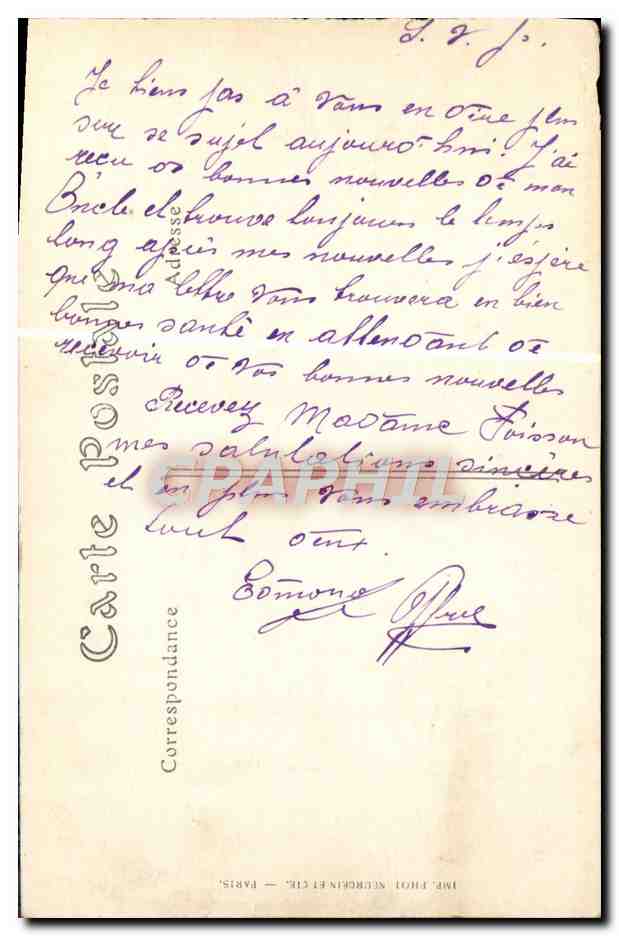 S. V. p.
Je tiens pas à Vous en dire plus
sur se sujet aujourd'hui. J'ai
recu de bonnes nouvelles de mon
Oncle et trouve toujours le temps
long après mes nouvelles j'éspère
que ma lettre Vous trouvera en bien
bonnes santé en attendant de
recevoir de Vos bonnes nouvelles
Recevez Madame Poisson
mes salutations sincères
et en plus Vous embrasse
tout deux.
Edmond
Carte Postale
Correspondance
Adresse
IMP. PHOT. NEURDEIN ET CIE. — PARIS.
CPAPHIL